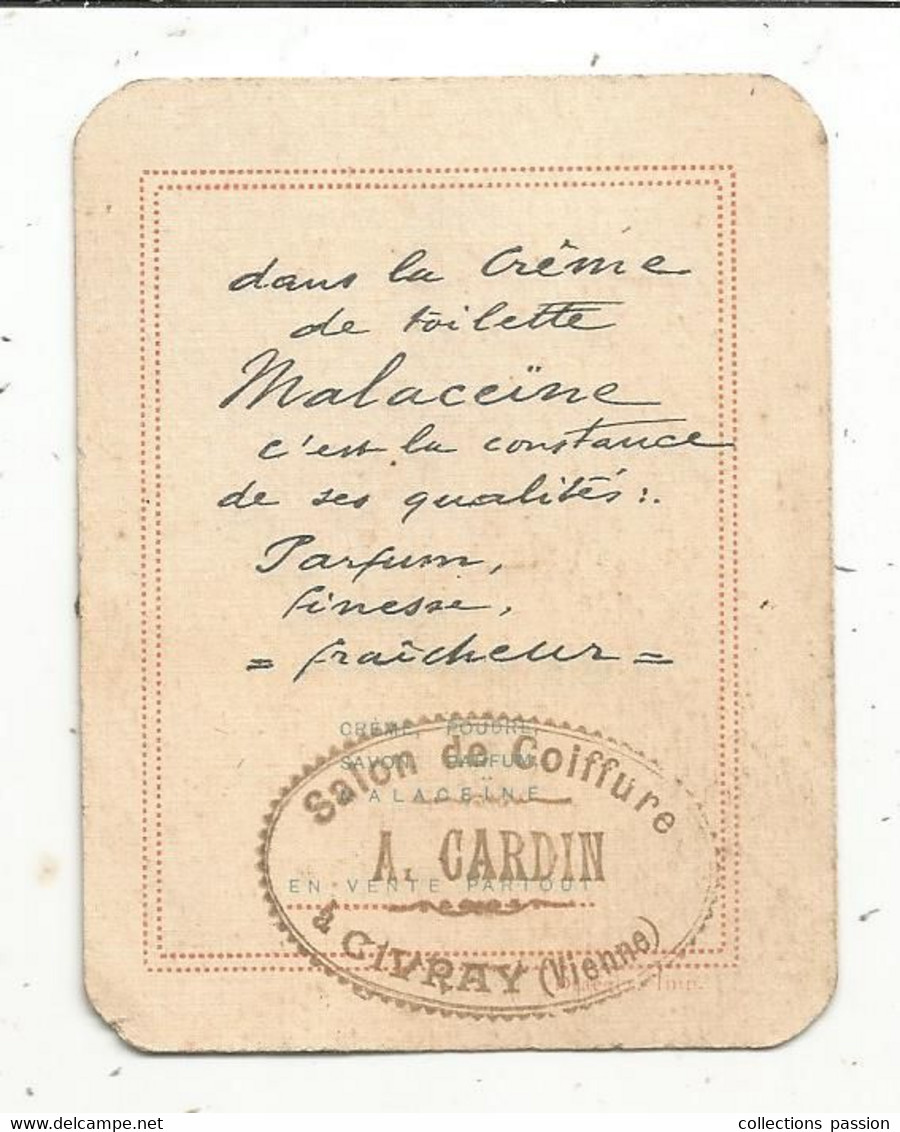 dans la Crême
de toilette
Malaceïne
c'est la constance
de ses qualités :.
Parfum,
finesse,
= fraîcheur =
CRÈME, POUDRE,
SAVON, PARFUM,
MALACEÏNE
EN VENTE PARTOUT
Salon de Coiffure
A. CARDIN
à CIVRAY (Vienne)
Imp.
collections passion